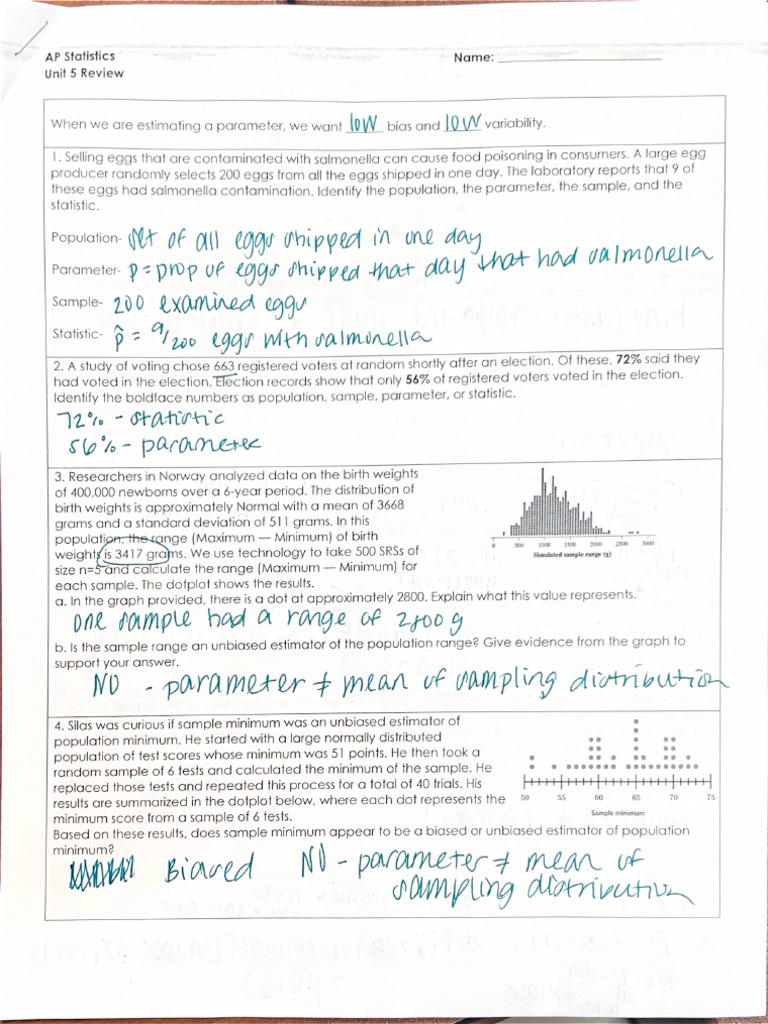 AP Statistics Name:
Unit 5 Review
When we are estimating a parameter, we want low bias and low variability.
1. Selling eggs that are contaminated with salmonella can cause food poisoning in consumers. A large egg
producer randomly selects 200 eggs from all the eggs shipped in one day. The laboratory reports that 9 of
these eggs had salmonella contamination. Identify the population, the parameter, the sample, and the
statistic.
Population- set of all eggs shipped in one day
Parameter- p = prop of eggs shipped that day that had salmonella
Sample- 200 examined eggs
Statistic- p̂ = 9/200 eggs with salmonella
2. A study of voting chose 663 registered voters at random shortly after an election. Of these, 72% said they
had voted in the election. Election records show that only 56% of registered voters voted in the election.
Identify the boldface numbers as population, sample, parameter, or statistic.
72% - statistic
56% - parameter
3. Researchers in Norway analyzed data on the birth weights
of 400,000 newborns over a 6-year period. The distribution of
birth weights is approximately Normal with a mean of 3668
grams and a standard deviation of 511 grams. In this
population, the range (Maximum — Minimum) of birth
weights is 3417 grams. We use technology to take 500 SRSs of
size n=5 and calculate the range (Maximum — Minimum) for
each sample. The dotplot shows the results.
0 500 1000 1500 2000 2500 3000
Simulated sample range (g)
a. In the graph provided, there is a dot at approximately 2800. Explain what this value represents.
one sample had a range of 2800 g
b. Is the sample range an unbiased estimator of the population range? Give evidence from the graph to
support your answer.
NO - parameter ≠ mean of sampling distribution
4. Silas was curious if sample minimum was an unbiased estimator of
population minimum. He started with a large normally distributed
population of test scores whose minimum was 51 points. He then took a
random sample of 6 tests and calculated the minimum of the sample. He
replaced those tests and repeated this process for a total of 40 trials. His
results are summarized in the dotplot below, where each dot represents the
minimum score from a sample of 6 tests.
50 55 60 65 70 75
Sample minimum
Based on these results, does sample minimum appear to be a biased or unbiased estimator of population
minimum?
Biased NO - parameter ≠ mean of
sampling distribution